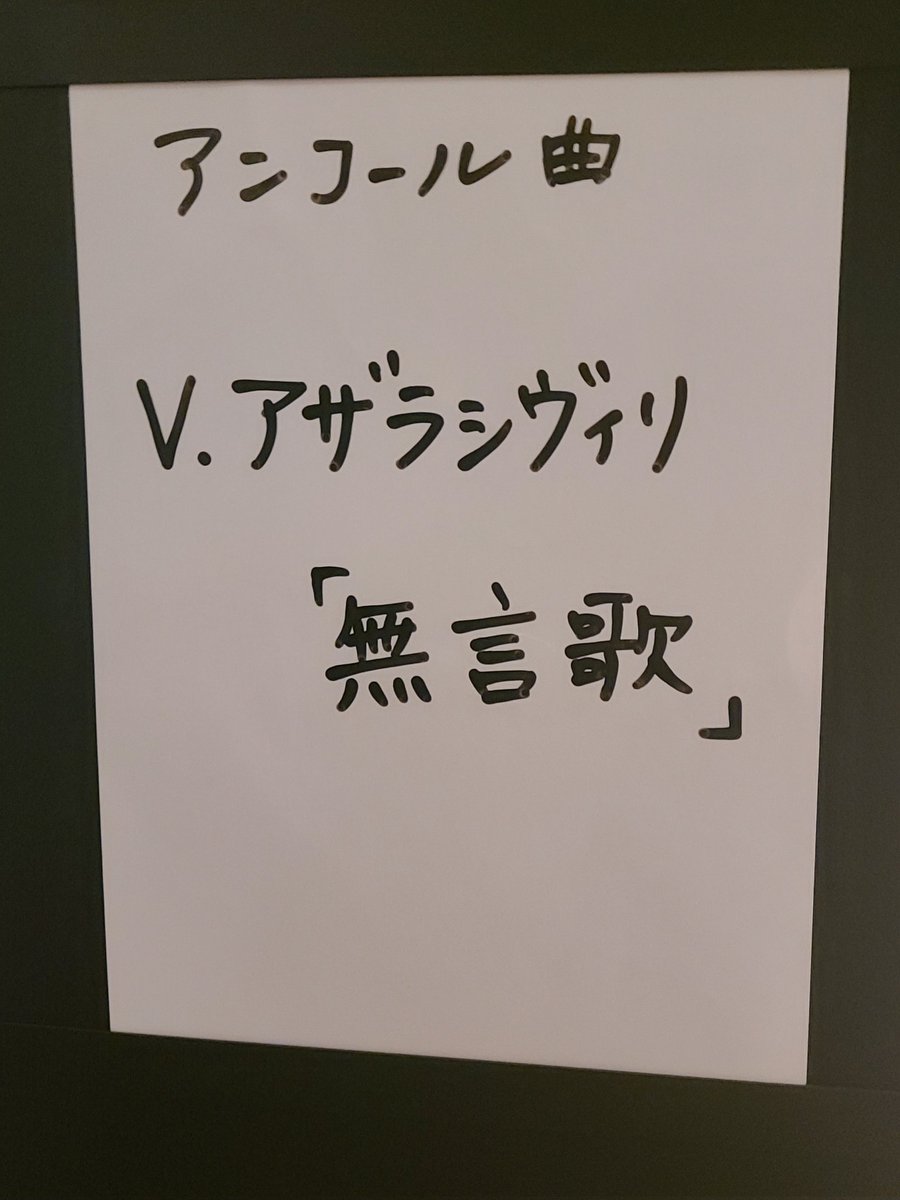 アンコール曲
V.アザラシヴィリ
「無言歌」